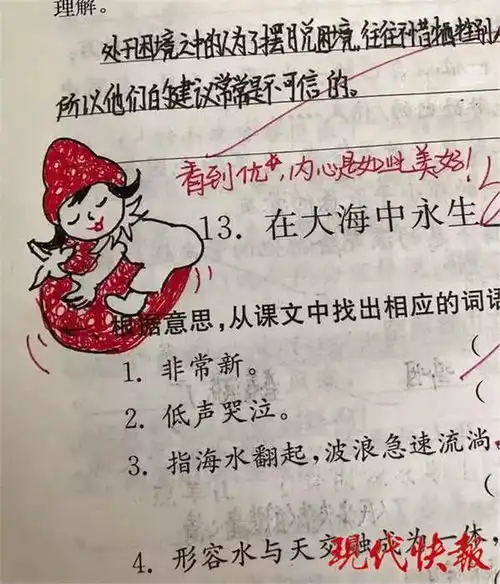 理解。
处于困境之中的人为了摆脱困境,往往不惜牺牲别人
所以他们的建议常常是不可信的。
看到优*,内心是如此美好!
13. 在大海中永生
一 根据意思,从课文中找出相应的词语
(
1. 非常新。
(
2. 低声哭泣。
3. 指海水翻起,波浪急速流淌
(
4. 形容水与天交融成为一体,
现代快報